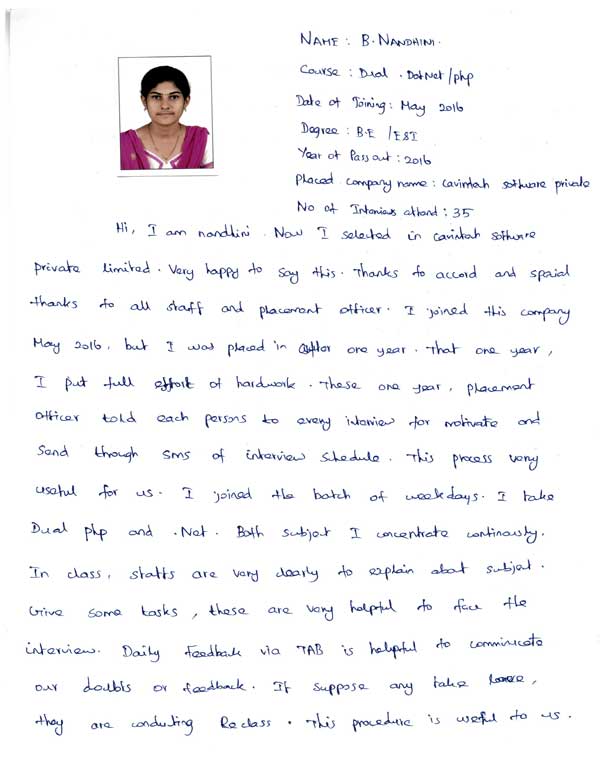 NAME : B. NANDHINI.
Course : Dual . DotNet / php
Date of Joining : May 2016
Degree : B.E / E&I
Year of Pass out : 2016
Placed company name : Cavintah software private
No of Interviews attend : 35
Hi, I am nandhini. Now I selected in Cavintah software
private limited. Very happy to say this. Thanks to accord and spcial
thanks to all staff and placement officer. I joined this company
May 2016, but I was placed in after one year. That one year,
I put full effort of hardwork. These one year, placement
officer told each persons to every interview for motivate and
Send through sms of interview schedule. This process very
useful for us. I joined the batch of weekdays. I take
Dual php and .Net. Both subject I concentrate continously.
In class, staffs are very clearly to explain about subject.
Give some tasks, these are very helpful to face the
interview. Daily feedback via TAB is helpful to comminicate
our doubts or feedback. If suppose any take leave,
they are conducting Reclass. This procedure is useful to us.